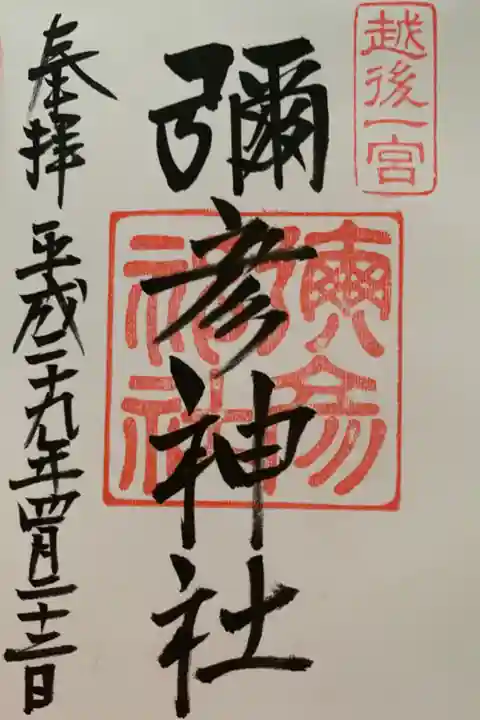 越後一宮
彌彦神社
奉拝
平成二十九年四月二十三日